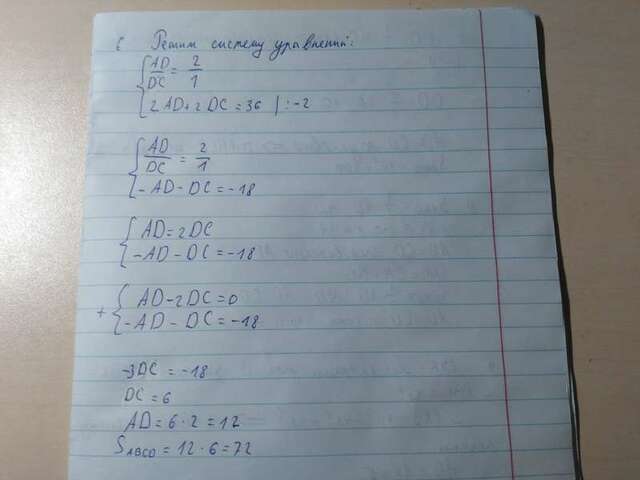 6 Решим систему уравнений:
{AD/DC = 2/1
2AD+2DC=36 | :-2
{AD/DC = 2/1
-AD-DC=-18
{AD=2DC
-AD-DC=-18
+{AD-2DC=0
-AD-DC=-18
-3DC=-18
DC=6
AD=6·2=12
SABCD=12·6=72